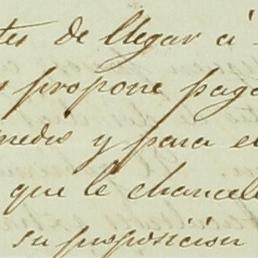 tes de llegar á
propone pag
medio y para e
que le chancel
su proposicion